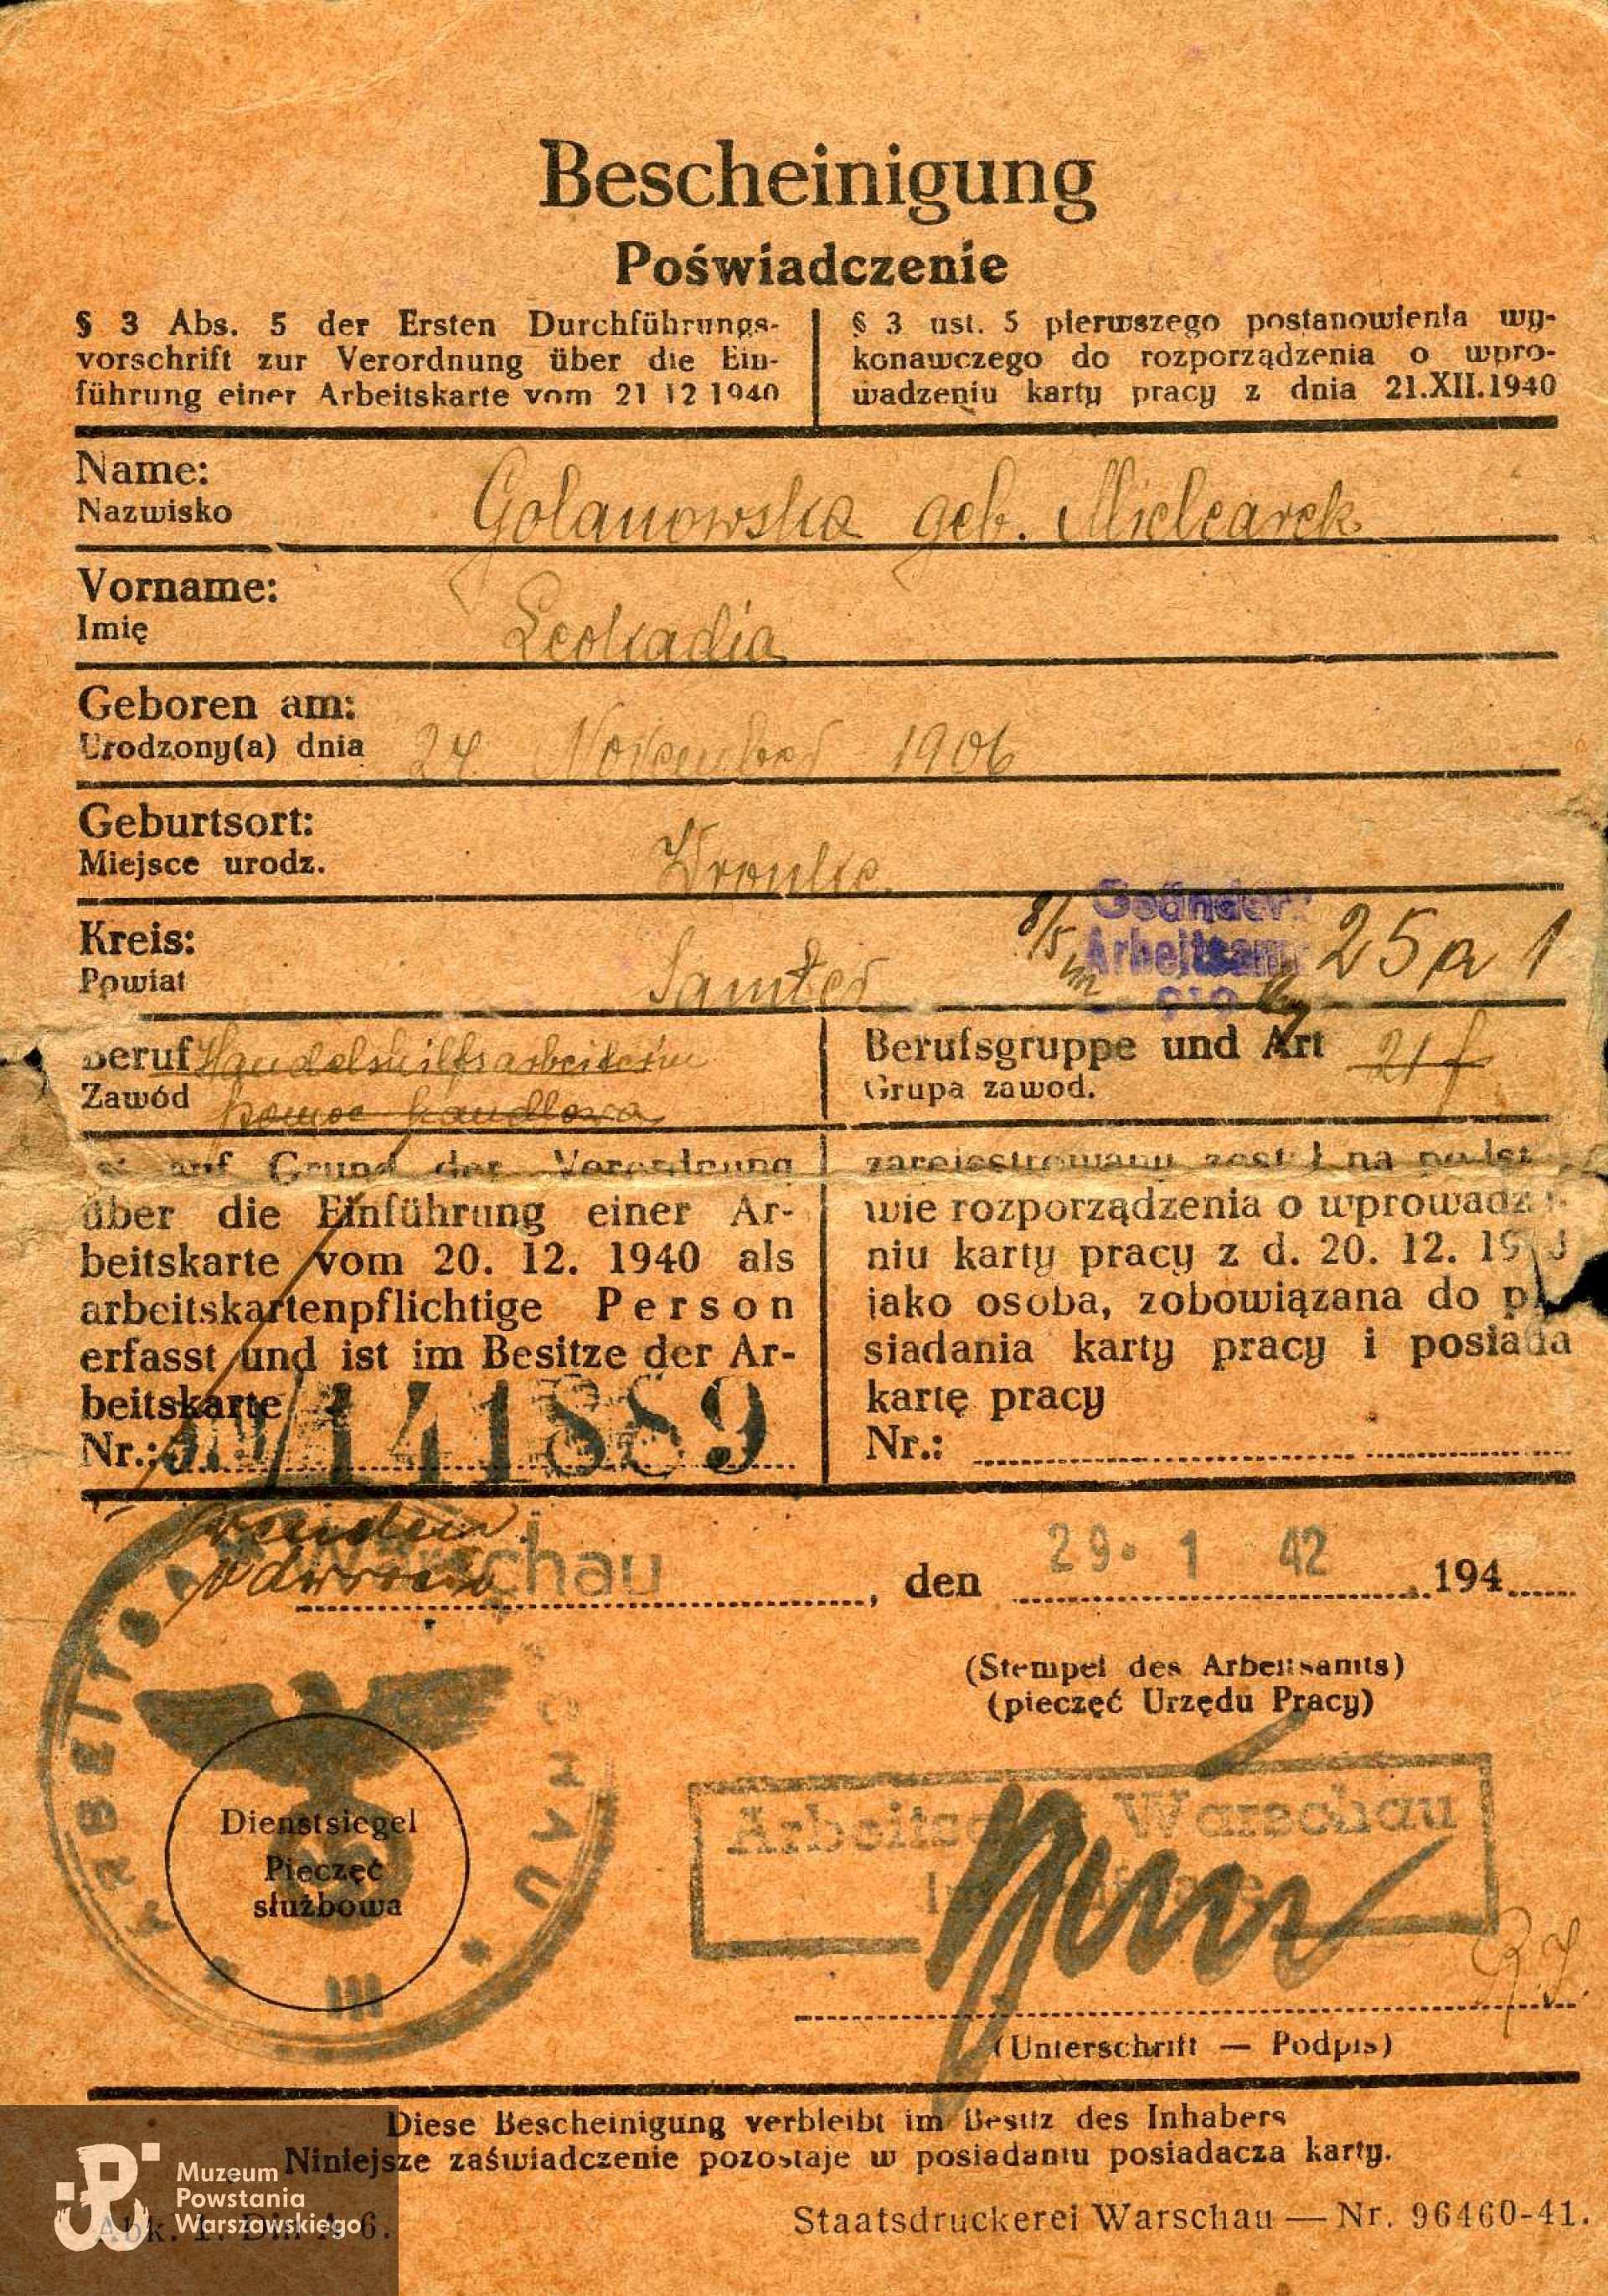 Bescheinigung
Poświadczenie
§ 3 Abs. 5 der Ersten Durchführungs-
vorschrift zur Verordnung über die Ein-
führung einer Arbeitskarte vom 21 12 1940
§ 3 ust. 5 pierwszego postanowienia wy-
konawczego do rozporządzenia o wpro-
wadzeniu karty pracy z dnia 21.XII.1940
Name:
Nazwisko
Golanowska geb. Mielcarek
Vorname:
Imię
Leokadia
Geboren am:
Urodzony(a) dnia
24 November 1906
Geburtsort:
Miejsce urodz.
Wronke
Kreis:
Powiat
Samter
8/5
Geändert
Arbeitsamt
25 a 1
Beruf Handelshilfsarbeiterin
Zawód pomoc handlowa
Berufsgruppe und Art 21 f
Grupa zawod.
auf Grund der Verordnung
über die Einführung einer Ar-
beitskarte vom 20. 12. 1940 als
arbeitskartenpflichtige Person
erfasst und ist im Besitze der Ar-
beitskarte
Nr.: /141889
zarejestrowany został na podst
wie rozporządzenia o wprowadz
niu karty pracy z d. 20. 12. 19
jako osoba, zobowiązana do p
siadania karty pracy i posiada
kartę pracy
Nr.:
Warschau, den 29. 1 42 194
(Stempel des Arbeitsamts)
(pieczęć Urzędu Pracy)
ARBEITS
CHAU
III
Dienstsiegel
Pieczęć
służbowa
Arbeitsa Warschau
(Unterschrift — Podpis)
Diese Bescheinigung verbleibt im Besitz des Inhabers
Niniejsze zaświadczenie pozostaje w posiadaniu posiadacza karty.
Muzeum
Powstania
Warszawskiego
Abk. 1. Din A 6.
Staatsdruckerei Warschau — Nr. 96460-41.